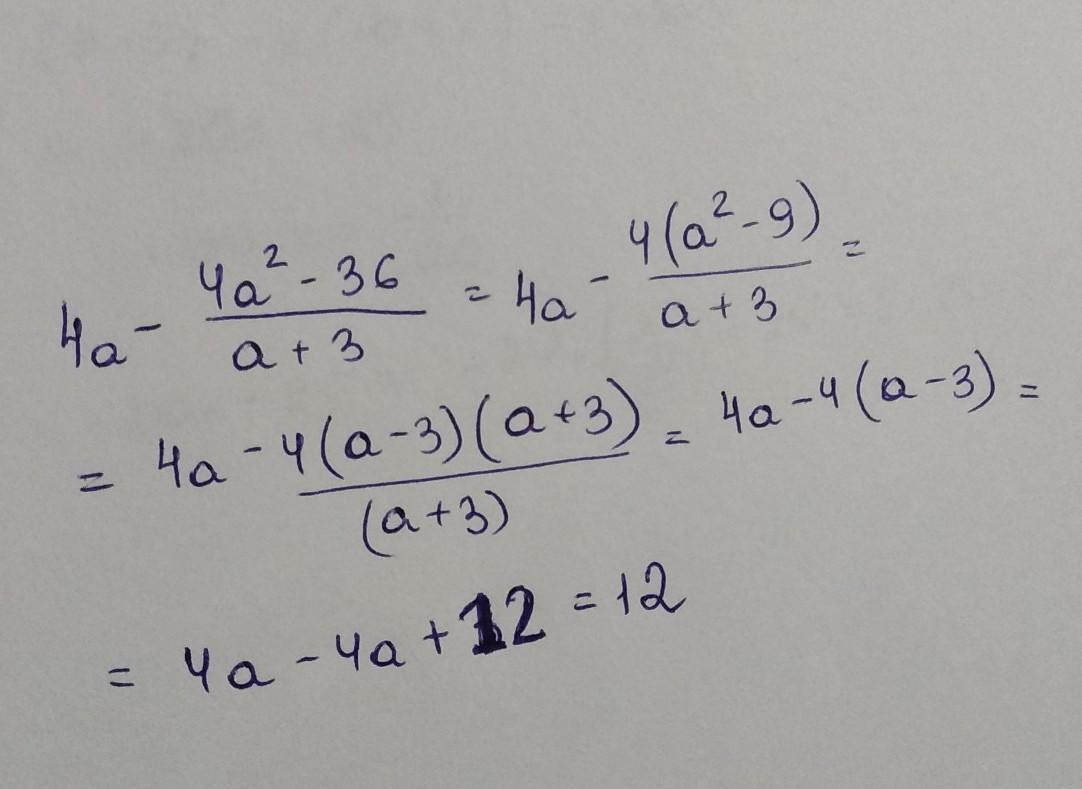 4a - \frac{4a^2 - 36}{a + 3} = 4a - \frac{4(a^2 - 9)}{a + 3} =
= 4a - \frac{4(a - 3)(a + 3)}{(a + 3)} = 4a - 4(a - 3) =
= 4a - 4a + 12 = 12